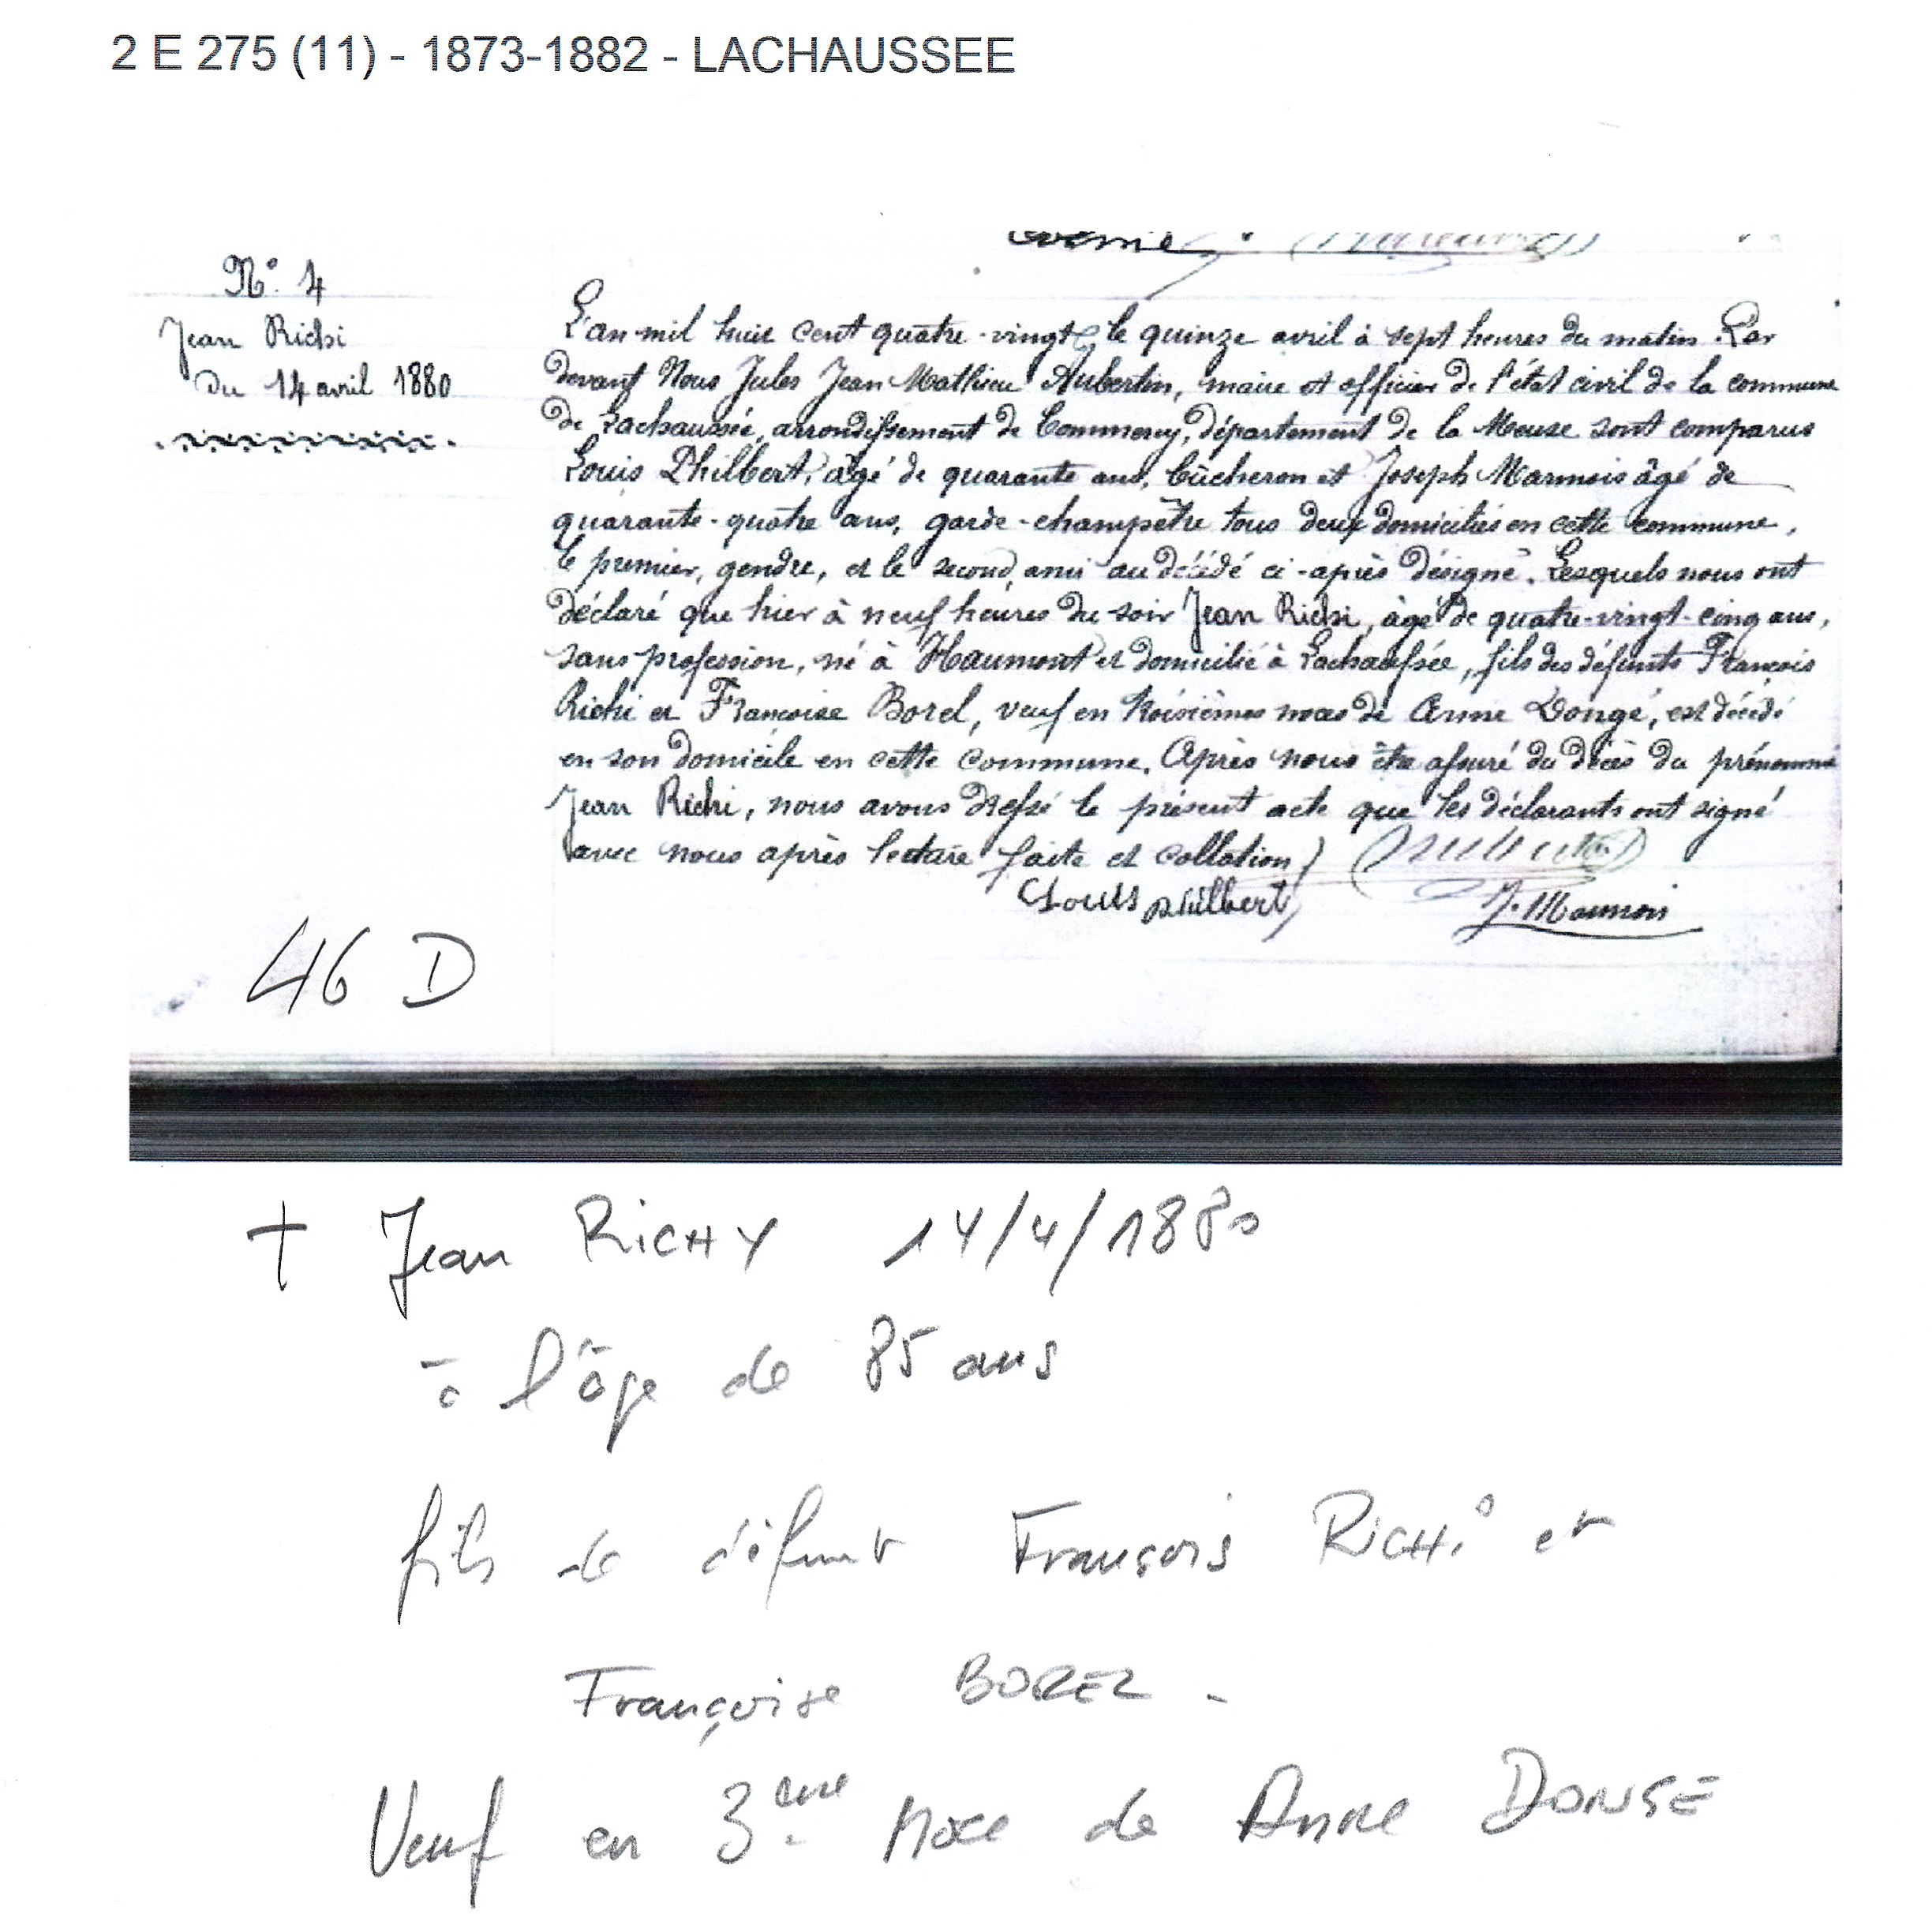 2 E 275 (11) - 1873-1882 - LACHAUSSEE
N.° 4
Jean Richi
du 14 avril 1880
L'an mil huit cent quatre-vingt, le quinze avril à sept heures du matin. Par
devant Nous Jules Jean Mathieu Aubertin, maire et officier de l'état civil de la commune
de Lachaussée, arrondissement de Commercy, département de la Meuse sont comparus
Louis Philbert, âgé de quarante ans, bûcheron et Joseph Marmois âgé de
quarante-quatre ans, garde-champêtre tous deux domiciliés en cette commune,
le premier, gendre, et le second, ami au décédé ci-après désigné. Lesquels nous ont
déclaré que hier à neuf heures du soir Jean Richi, âgé de quatre-vingt-cinq ans,
sans profession, né à Haumont et domicilié à Lachaussée, fils des défunts François
Richi et Françoise Borel, veuf en troisièmes noces de Anne Dongé, est décédé
en son domicile en cette commune. Après nous être assuré du décès du prénommé
Jean Richi, nous avons dressé le présent acte que les déclarants ont signé
avec nous après lecture faite et collation
Louis philbert
J. Marmois
46 D
† Jean RICHY 14/4/1880
à l'âge de 85 ans
fils de défunt François RICHI et
Françoise BOREL -
Veuf en 3eme Noce de Anne DONGE